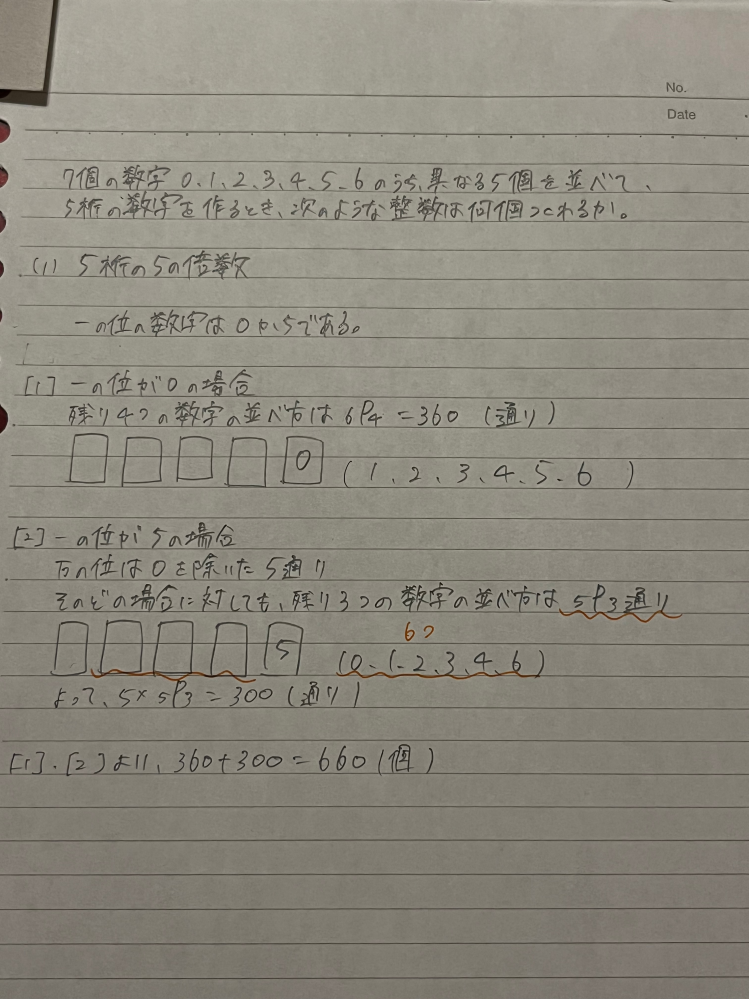 No.
Date
7個の数字 0、1、2、3、4、5、6 のうち、異なる5個を並べて、
5桁の数字を作るとき、次のような整数は何個つくれるか。
(1) 5桁の5の倍数
一の位の数字は0か5である。
[1] 一の位が0の場合
残り4つの数字の並べ方は 6P4 = 360 (通り)
0 (1、2、3、4、5、6)
[2] 一の位が5の場合
万の位は0を除いた5通り
そのどの場合に対しても、残り3つの数字の並べ方は 5P3通り
6つ
5 (0、1、2、3、4、6)
よって、5×5P3 = 300 (通り)
[1]、[2]より、360+300=660 (個)